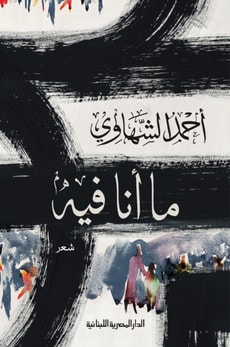 أحمد الشهاوي
ما أنا فيه
شعر
الدار المصرية اللبنانية